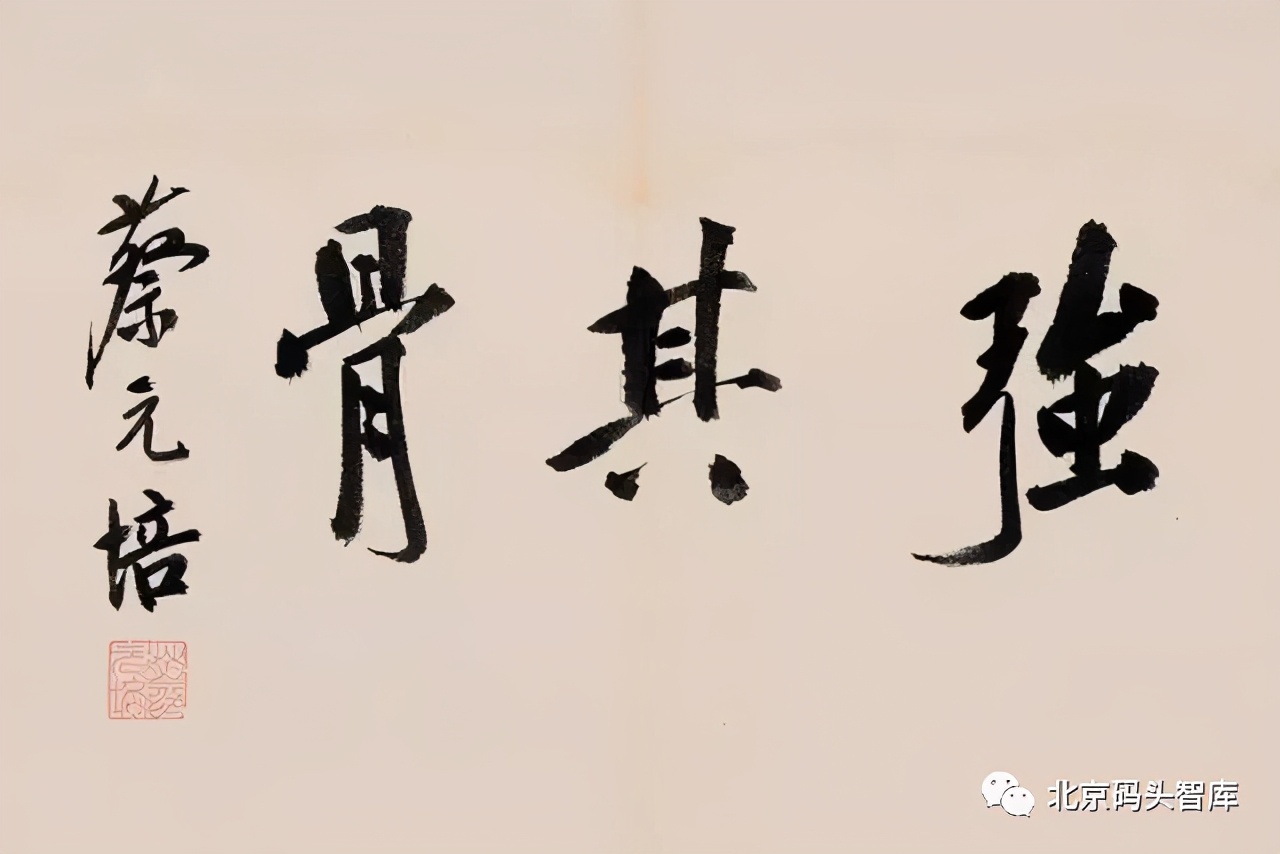 強其骨
蔡元培
蔡元培
北京码头智库